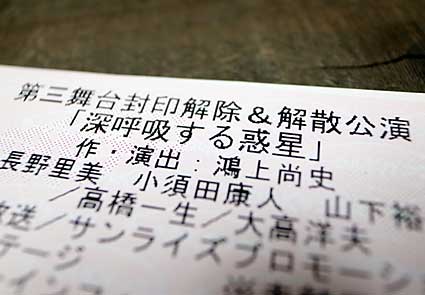 第三舞台封印解除＆解散公演
「深呼吸する惑星」
作・演出：鴻上尚史
長野里美　小須田康人　山下裕
／高橋一生／大高洋夫
放送／サンライズプロモーシ
テージ